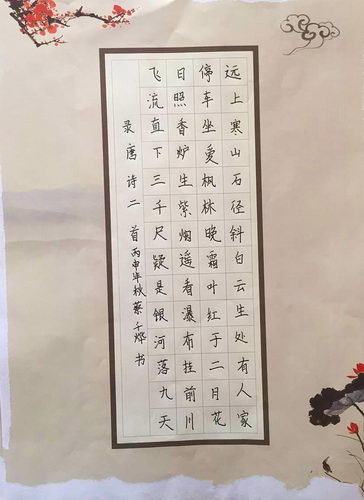 远上寒山石径斜白云生处有人家
停车坐爱枫林晚霜叶红于二月花
日照香炉生紫烟遥看瀑布挂前川
飞流直下三千尺疑是银河落九天
录唐诗二首丙申年秋蔡千烨书